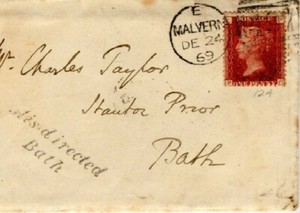 E
MALVERN
DE 24
69
POSTAGE
Mr. Charles Taylor
Stanton Prior
Bath
Misdirected
Bath
124